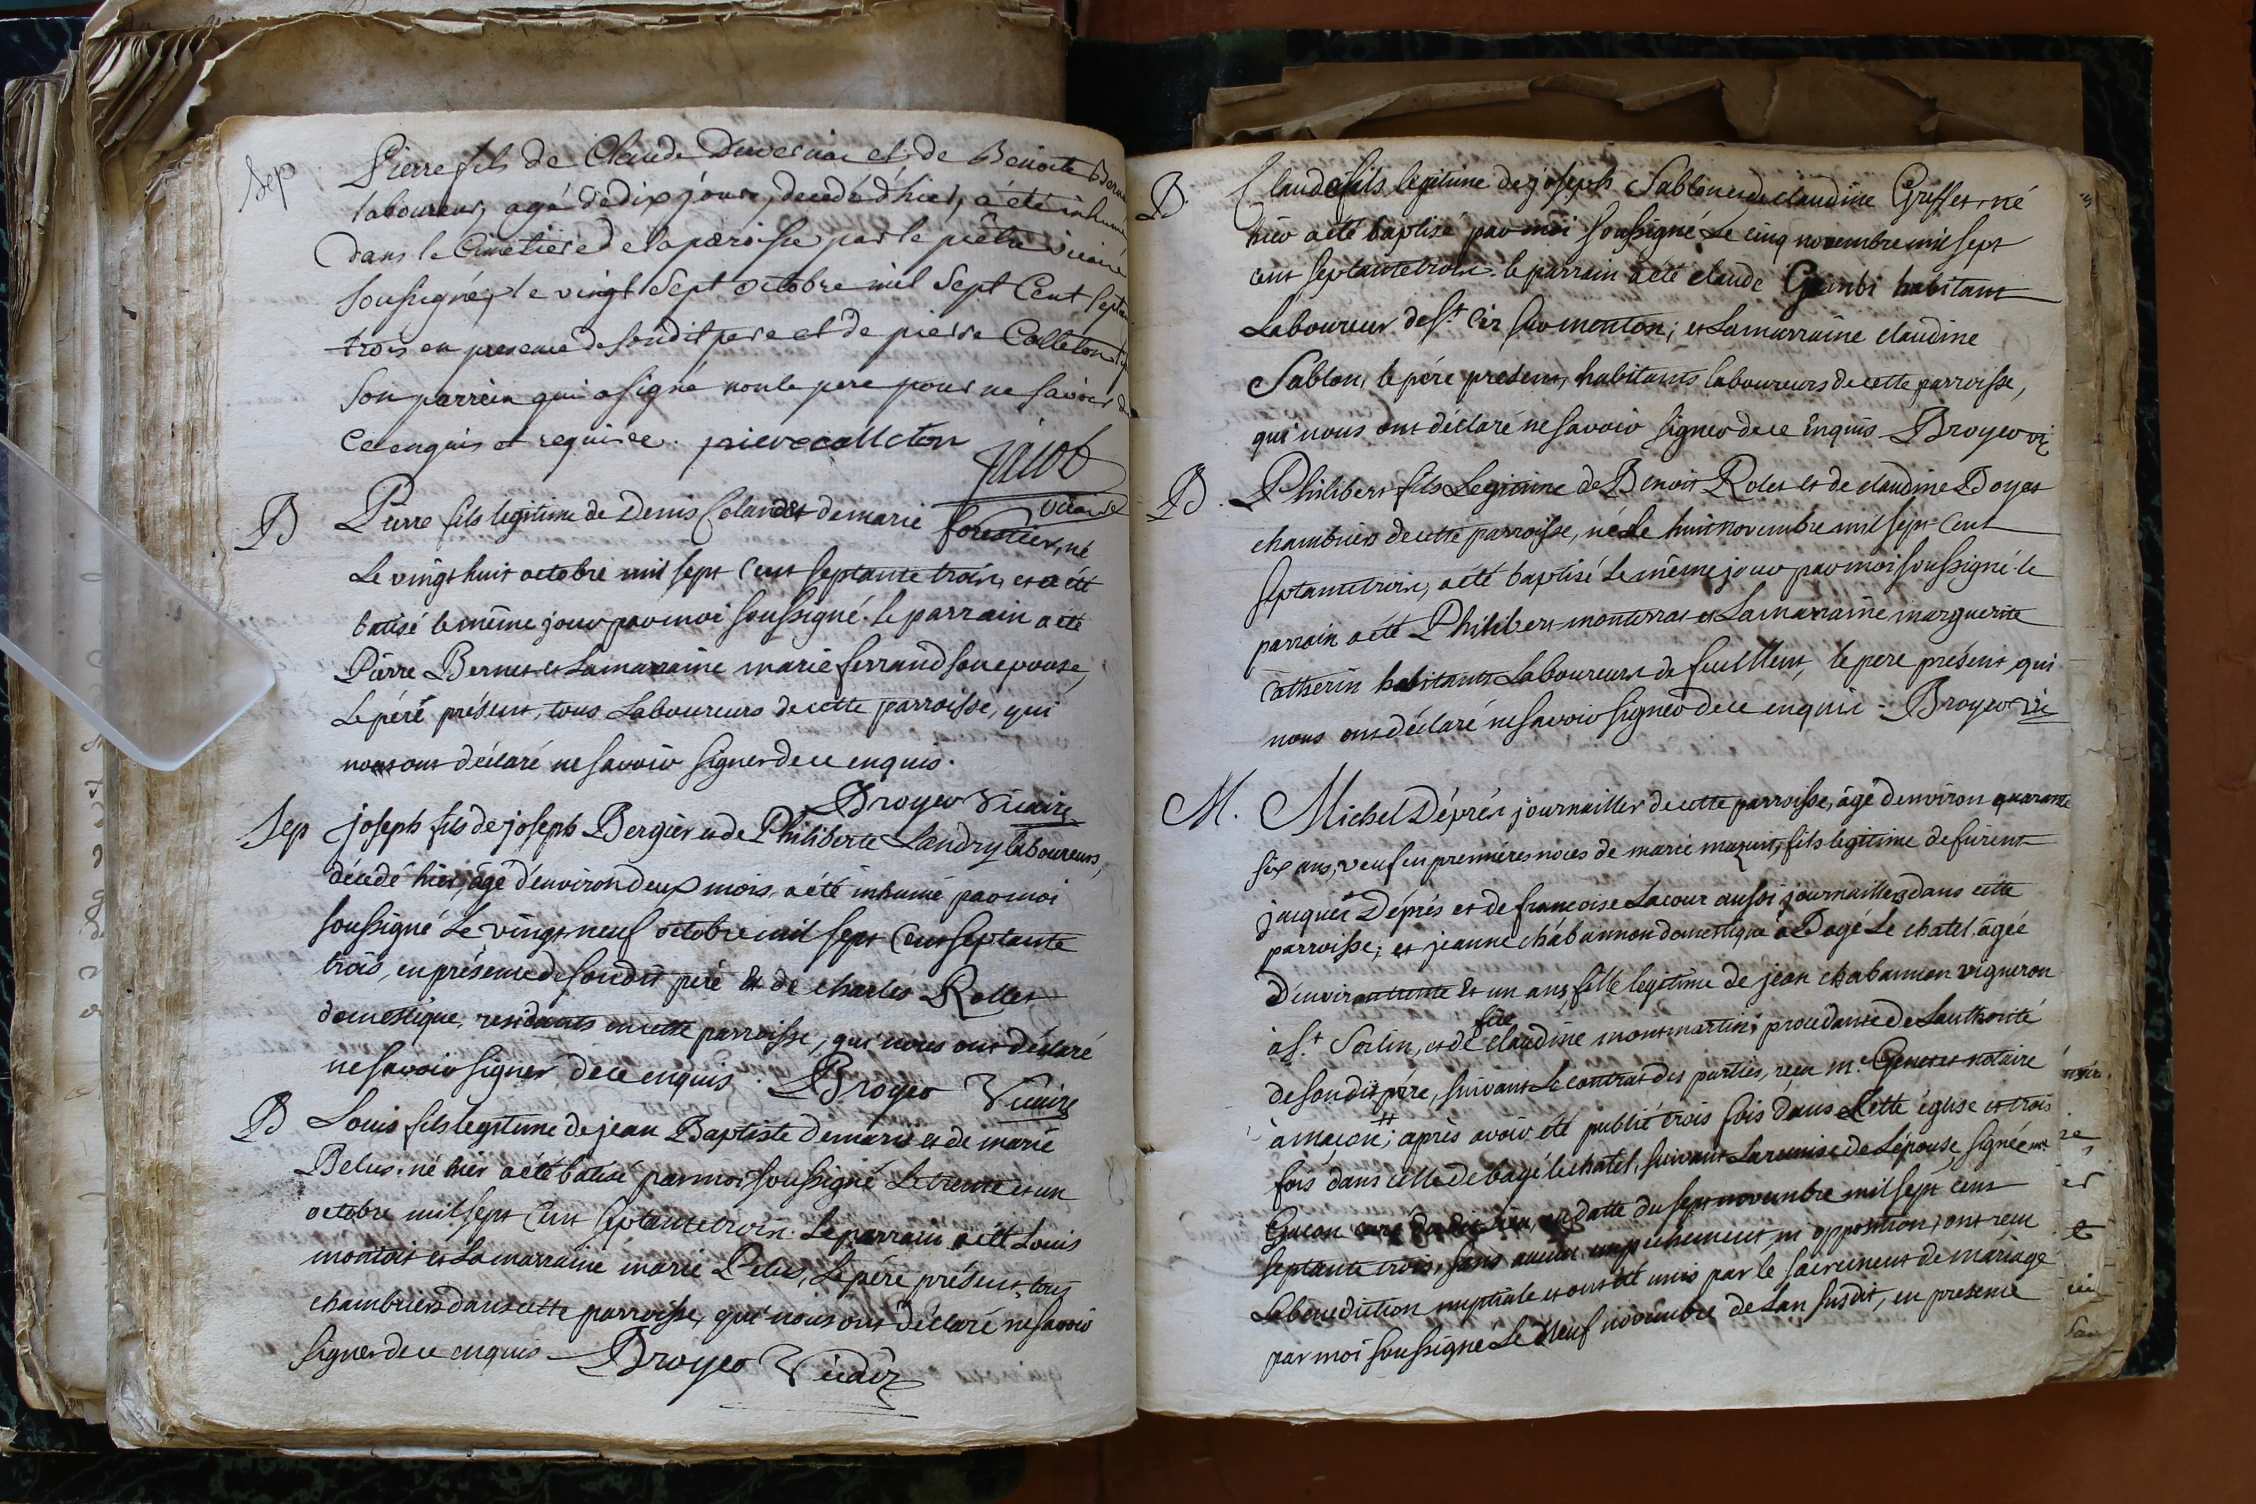 Sep
Pierre fils de Claude Duvernai et de Benoite
laboureur, agé de dix jours, decedé d'hier, a été inhumé
dans le Cimetiere de la paroisse par le prêtre vicaire
soussigné, le vingt Sept octobre mil Sept Cent
trois en presence de son dit pere et de pierre Colleton
son parrain qui a signé non le pere pour ne savoir de
ce enquis et requis ce. pierre colleton
jacob
vicaire
B
Pierre fils legitime de Denis Colandet de marie forestier, né
Le vingt huit octobre mil sept cent septante trois, et a été
batisé le même jour par moi soussigné. le parrain a été
Pierre Bernet et La marraine marie ferrand son epouse,
Le péré présent, tous Laboureurs de cette parroisse, qui
nous ont déclaré ne savoir signer de ce enquis.
Broyer Vicaire
Sep
joseph fils de joseph Bergier et de Philiberte Landry laboureurs,
décedé hier, âgé d'environ deux mois, a été inhumé par moi
soussigné Le vingt neuf octobre mil sept Cent septante
trois, en présence de son dit peré et de charles Rollet
domestique, residants en cette parroisse, qui nous ont déclaré
ne savoir signer de ce enquis. Broyer Vicaire
B
Louis fils legitime de jean Baptiste Demaris et de marie
Belus. né hier a été batisé par moi soussigné Le trente et un
octobre mil sept Cent septante trois. Le parrain a été Louis
montois et La marraine marie Pelus, Le péré présent, tous
chambriers dans cette parroisse, qui nous ont déclaré ne savoir
signer de ce enquis Broyer Vicaire
B.
Claude fils legitime de joseph Sablon et de claudine Greffet, né
hier a été baptisé par moi soussigné Le cinq novembre mil sept
cent septante trois. le parrain a été claude habitant
Laboureur de St. Cir sur menton; et La marraine claudine
Sablon, le pére present, habitants laboureurs de cette parroisse,
qui nous ont déclaré ne savoir signer de ce enquis Broyer vi
B.
Philibert fils Legitime de Benoit Rolet et de claudine Doyat
chambriers de cette parroisse, né le huit novembre mil sept Cent
septante trois, a été baptisé Le même jour par moi soussigné. le
parrain a été Philibert monterrat et La marraine marguerite
catherin habitants Laboureurs de feuillent, le pere présent, qui
nous ont déclaré ne savoir signer de ce enquis - Broyer vi
M.
Michel Déprés journailler de cette parroisse, âgé d'environ quarante
six ans, veuf en premieres noces de marie mazuit, fils legitime de furent
jacques Déprés et de francoise Lacour aussi journaillers dans cette
parroisse; et jeanne chabannon domestique à Bagé Le chatel, âgée
d'environ trente et un ans, fille legitime de jean chabannon vigneron
à St. Sorlin, et de
feue
claudine montmartin; procedante de Lauthorité
de son dit pére, suivant Le contrat des parties, reçu m.e notaire
à macon; après avoir été publié trois fois dans Cette église et trois
fois dans celle de bagé le chatel, suivant La remise de L'épouse signée mr
Gacon curé du dit lieu, en datte du sept novembre mil sept cent
septante trois, sans aucun empechement ni opposition, ont reçu
La benediction nuptiale et ont été unis par le sacrement de mariage
par moi soussigné Le neuf novembre de L'an susdit, en presence